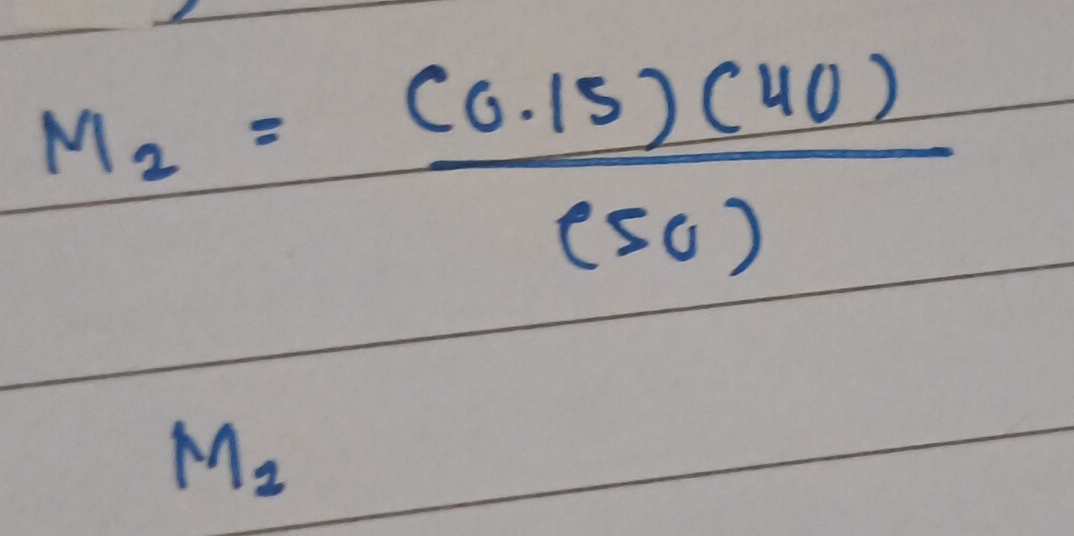 M₂ = (0.15)(40)
(50)
M₂